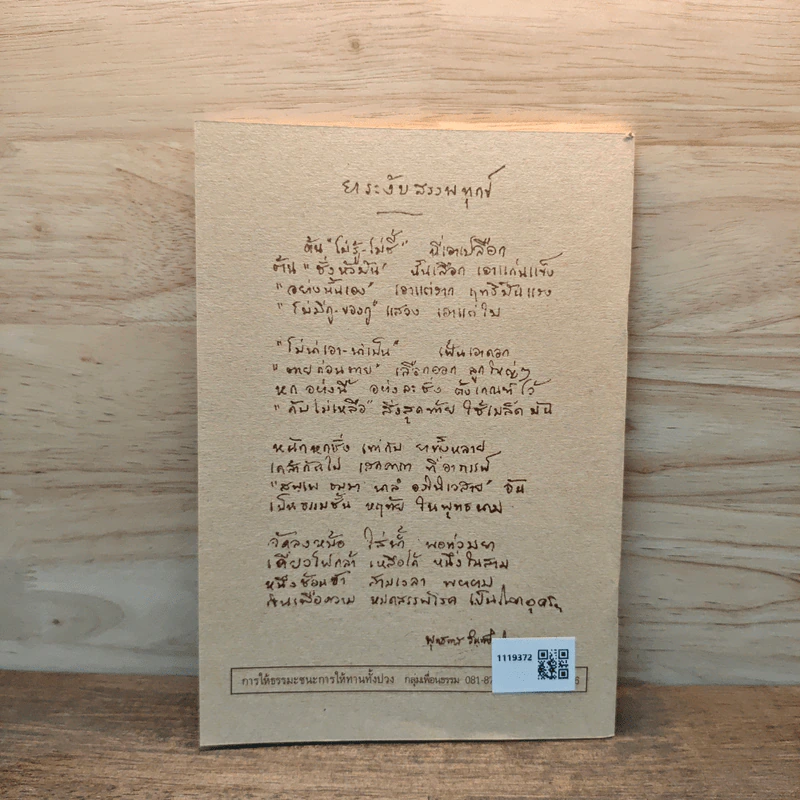 ยาระงับสรรพทุกข์
ต้น "ไม่รู้-ไม่ชี้" นี่เอาเปลือก
ต้น "ชั่งหัวมัน" นั้นเลือก เอาแก่นแข็ง
"อย่างนั้นเอง" เอาแต่ราก ฤทธิ์มันแรง
"ไม่มีกู-ของกู" แสวง เอาแต่ใบ
"ไม่น่าเอา-น่าเป็น" เฟ้นเอาดอก
"ตายก่อนตาย" เลือกออก ลูกใหญ่ๆ
หก อย่างนี้ อย่างละชั่ง ตั้งเกณฑ์ไว้
"ดับไม่เหลือ" สิ่งสุดท้าย ใช้เมล็ดมัน
หนักหกชั่ง เท่ากับ ยาทั้งหลาย
เคล้ากันไป เสกคาถา ที่อาถรรพ์
"สพฺเพ ธมฺมา นาลํ อภินิเวสาย" อัน
เป็นธรรมชั้น หฤทัย ในพุทธนาม
จัดลงหม้อ ใส่น้ำ พอท่วมยา
เคี่ยวไฟกล้า เหลือได้ หนึ่งในสาม
หนึ่งช้อนชา สามเวลา พยายาม
กินเพื่อความ หมดสรรพโรค เป็นโลกอุดรฯ
พุทธทาส
1119372
การให้ธรรมะชนะการให้ทานทั้งปวง กลุ่มเพื่อนธรรม 081-8